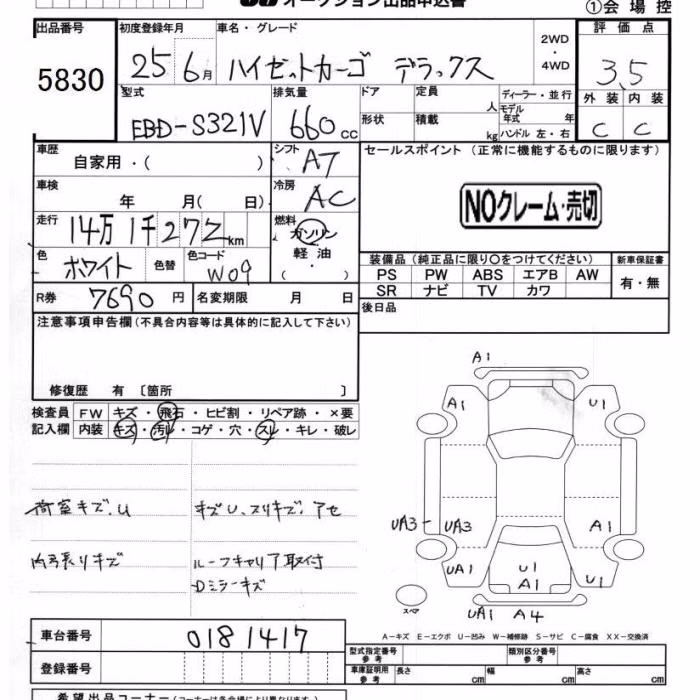 オークション出品申込書
①会場控
出品番号
5830
初度登録年月
25 6月
車名・グレード
ハイゼットカーゴ デラックス
2WD
・
4WD
評価点
3.5
外装 内装
C C
型式
EBD-S321V
排気量
660cc
ドア
形状
定員 人
積載 kg
ディーラー・並行
モデル年式 年
ハンドル 左・右
車歴
自家用・( )
シフト
AT
セールスポイント (正常に機能するものに限ります)
NOクレーム・売切
車検
年 月( 日)
冷房
AC
走行
14万1千272km
燃料
ガソリン
軽油
・( )
色
ホワイト
色替
色コード
W09
装備品(純正品に限り○をつけてください)
PS PW ABS エアB AW
SR ナビ TV カワ
新車保証書
有・無
R券
7690円
名変期限 月 日
後日品
注意事項申告欄(不具合内容等は具体的に記入して下さい)
修復歴 有〔箇所 〕
検査員
記入欄
FW キズ・飛石・ヒビ割・リペア跡・×要
内装 キズ・汚レ・コゲ・穴・スレ・キレ・破レ
荷室キズ.U
キズU、スリキズ、アセ
内張りキズ
ルーフキャリア取付
Dミラーキズ
A1
A1 U1
UA3 UA3 A1
UA1 U1 A1 U1
スペア
UA1 A4
A-キズ E-エクボ U-凹み W-補修跡 S-サビ C-腐食 XX-交換済
車台番号
0181417
登録番号
型式指定番号 参考
類別区分番号 参考
車庫証明用 参考
長さ cm 幅 cm 高さ cm
希望出品コーナー(コーナーは各会場により異なります)